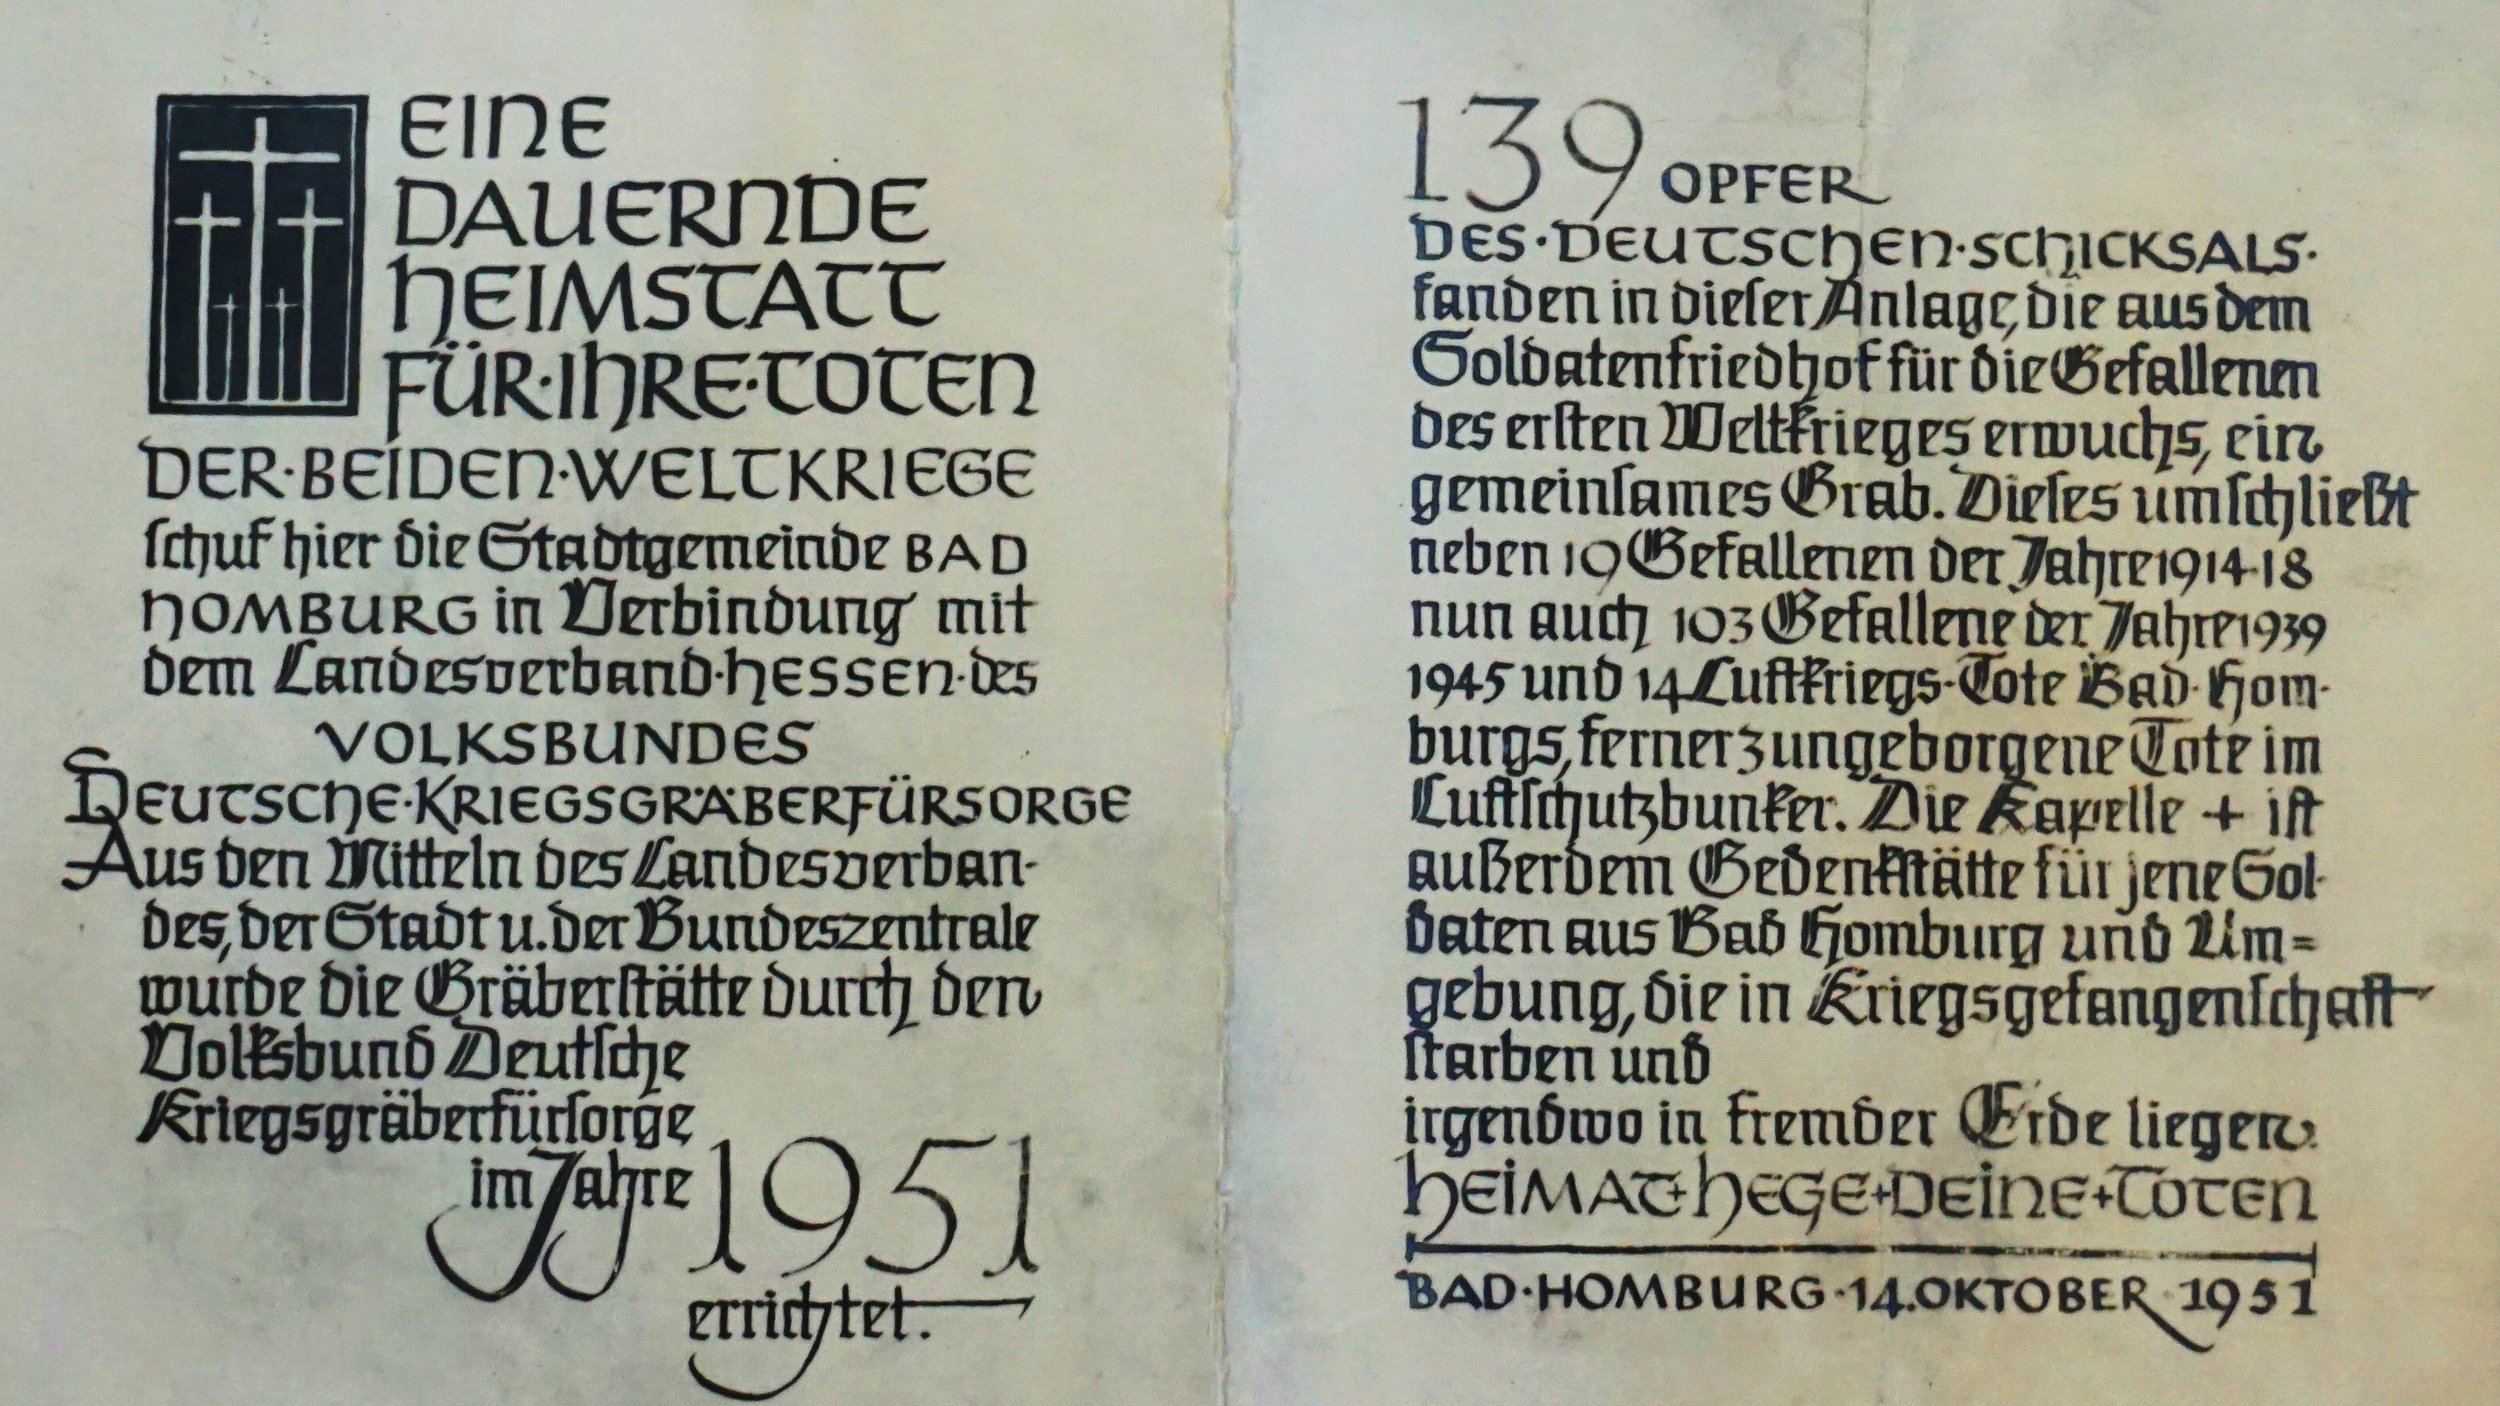 EINE
DAUERNDE
HEIMSTATT
FÜR·IHRE·TOTEN
DER·BEIDEN·WELTKRIEGE
schuf hier die Stadtgemeinde BAD
HOMBURG in Verbindung mit
dem Landesverband·HESSEN·des
VOLKSBUNDES
DEUTSCHE·KRIEGSGRÄBERFÜRSORGE
Aus den Mitteln des Landesverban-
des, der Stadt u. der Bundeszentrale
wurde die Gräberstätte durch den
Volksbund Deutsche
Kriegsgräberfürsorge
im Jahre 1951
errichtet.
139 OPFER
DES·DEUTSCHEN·SCHICKSALS·
fanden in dieser Anlage, die aus dem
Soldatenfriedhof für die Gefallenen
des ersten Weltkrieges erwuchs, ein
gemeinsames Grab. Dieses umschließt
neben 19 Gefallenen der Jahre 1914-18
nun auch 103 Gefallene der Jahre 1939
1945 und 14 Luftkriegs-Tote Bad-Hom-
burgs, ferner 3 ungeborgene Tote im
Luftschutzbunker. Die Kapelle + ist
außerdem Gedenkstätte für jene Sol-
daten aus Bad Homburg und Um=
gebung, die in Kriegsgefangenschaft
starben und
irgendwo in fremder Erde liegen.
HEIMAT+HEGE+DEINE+TOTEN
BAD·HOMBURG·14.OKTOBER 1951